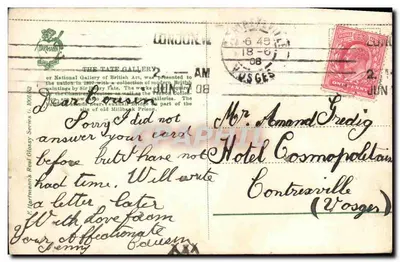 LONDON.W
THE TATE GALLERY
or National Gallery of British Art, was presented to
the nation in 1897 with a collection of modern British
paintings by Sir Henry Tate. The
of old Millbank Prison.
2. AM
JUN 17 08
6 45
18-6
08
VOSGES
LONDON
2.
JUN 1
ONE PENNY
Dear Cousin
Sorry I did not
answer your card
before but have not
had time. Will write
a letter later
With love from
Your Affectionate
Cousin
Jenny
XXX
Mr. Amand Fredig
Hotel Cosmopolitain
Contrexville
(Vosges)